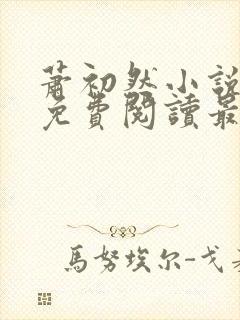 蕭初然小說
免費閱讀最
馬努埃尔-戈